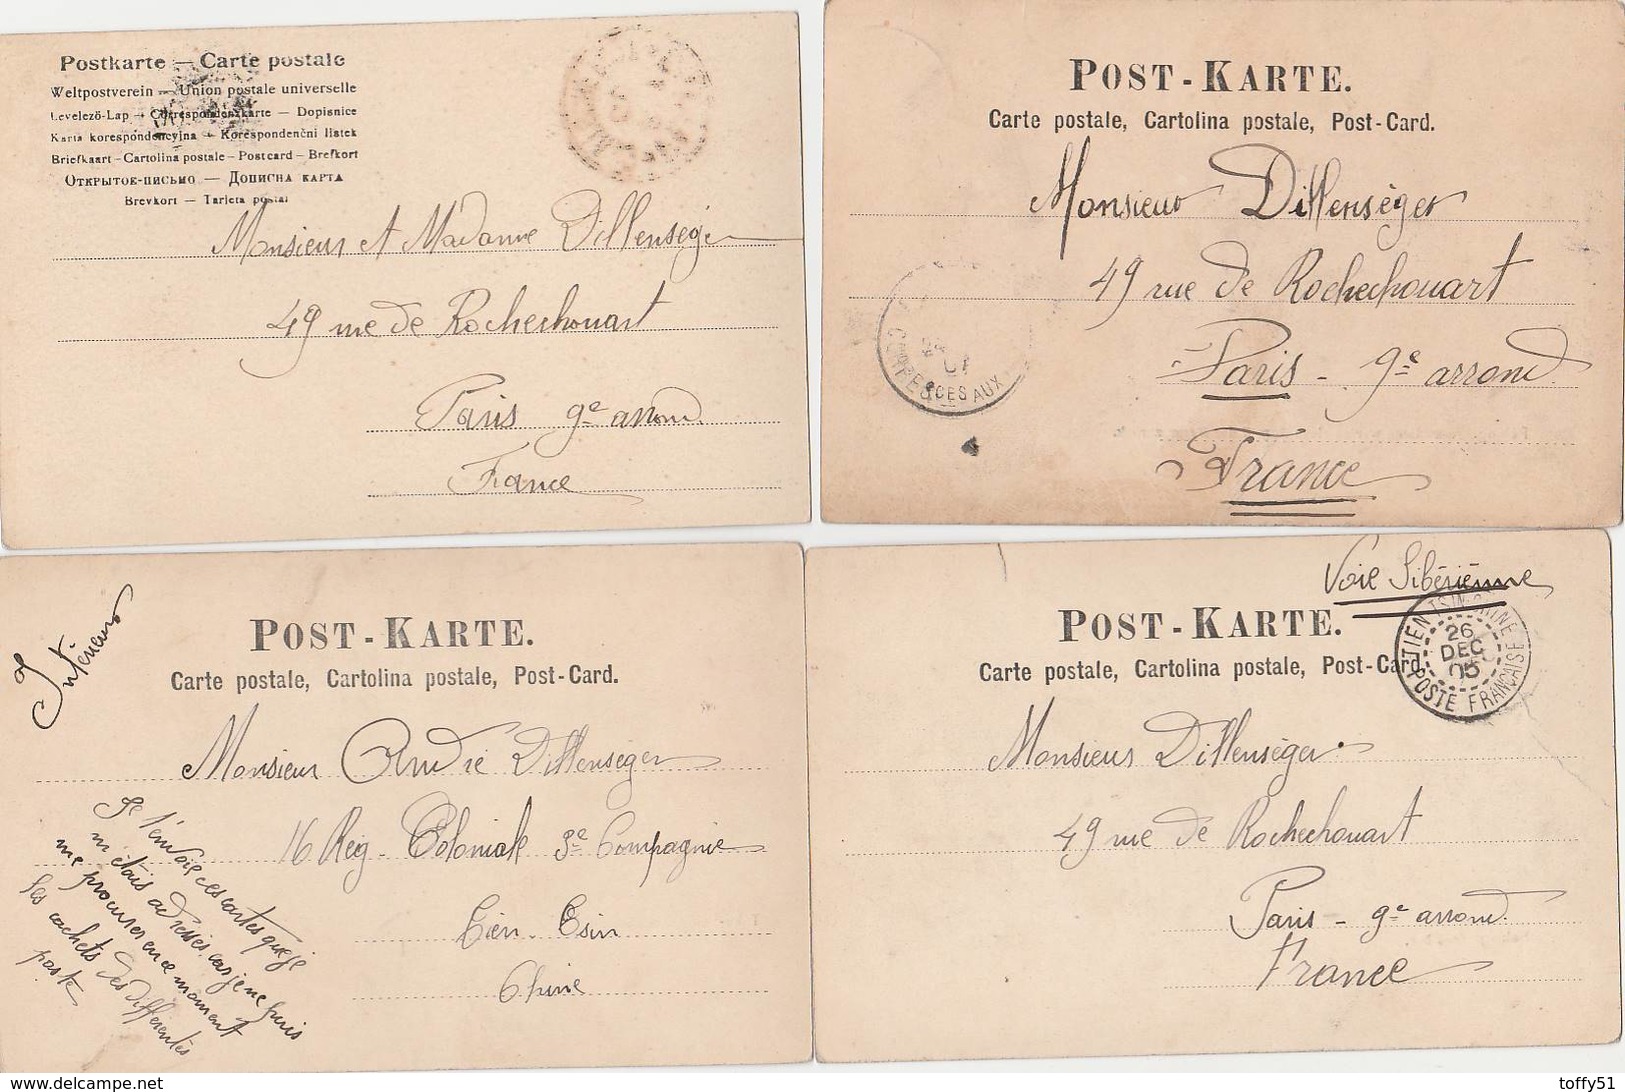 Postkarte — Carte postale
Weltpostverein — Union postale universelle
Levelezö-Lap — Correspondenzkarte — Dopisnice
Karta korespondencyjna — Korespondenční lístek
Briefkaart — Cartolina postale — Postcard — Brefkort
Открытое-письмо — Дописна карта
Brevkort — Tarjeta postal
Monsieur et Madame Dillenseger
49 rue de Rochechouart
Paris 9e arrond
France
Post-Karte.
Carte postale, Cartolina postale, Post-Card.
Monsieur Dillenséger
49 rue de Rochechouart
Paris - 9e arrond
France
CORRESP CES AUX
01
Intérieur
Post-Karte.
Carte postale, Cartolina postale, Post-Card.
Monsieur André Dillenséger
16 Reg - Coloniale 3e Compagnie
Tien-Tsin
Chine
Je t'envoie ces cartes que je
m'étais adressées, car je ne puis
me procurer en ce moment
les cachets des différentes
poste
Voie Sibérienne
Post-Karte.
Carte postale, Cartolina postale, Post-Card.
TIENTSIN CHINE
26
DEC
05
POSTE FRANÇAISE
Monsieur Dillenséger
49 rue de Rochechouart
Paris - 9e arrond.
France
toffy51